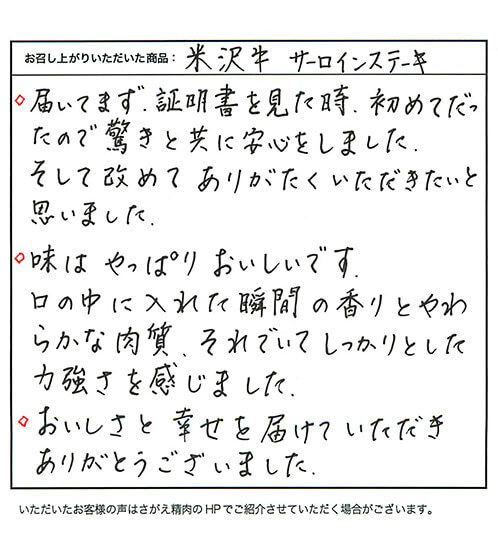 お召し上がりいただいた商品： 米沢牛 サーロインステーキ
◇届いてまず、証明書を見た時、初めてだっ
たので驚きと共に安心をしました。
そして改めて ありがたくいただきたいと
思いました。
◇味は やっぱり おいしいです。
口の中に入れた瞬間の香りとやわ
らかな肉質、それでいてしっかりとした
力強さを感じました。
◇おいしさと 幸せを届けていただき
ありがとうございました。
いただいたお客様の声はさがえ精肉のHPでご紹介させていただく場合がございます。